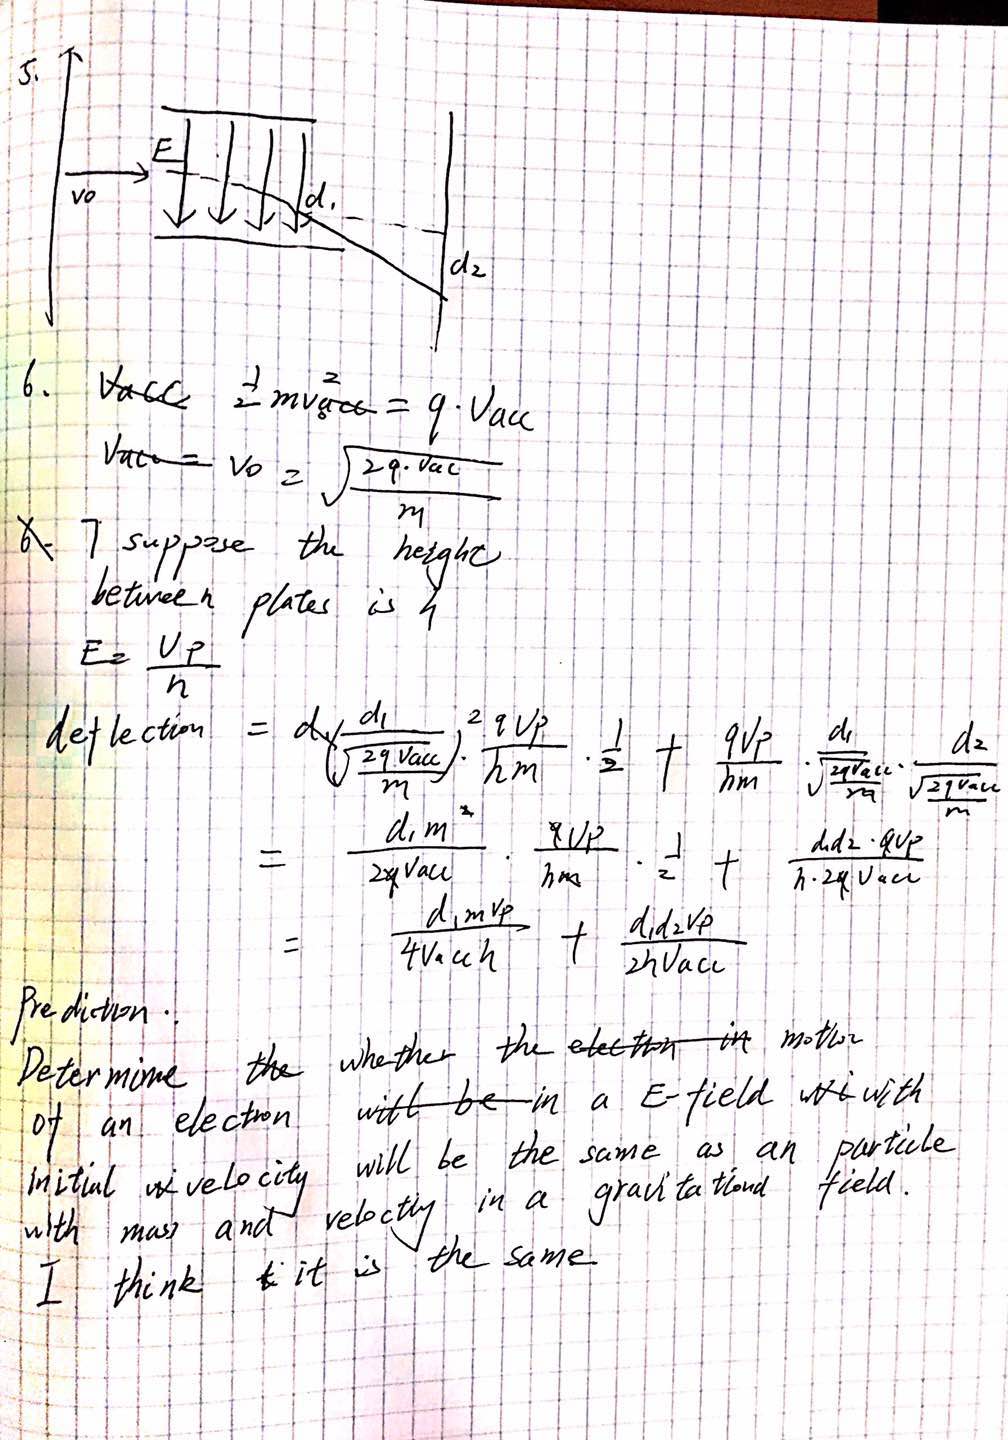 5.
E
v0
d1
d2
6. Vacc 1/2 mv0acc² = q · Vacc
Vacc = v0 = √(2q·Vacc/m)
6. 7 suppose the height
between plates is h
E = Vp/h
deflection = d(d1/√(2qVacc/m))² · qVp/hm · 1/2 + qVp/hm · d1/√(2qVacc/m) · d2/√(2qVacc/m)
= d1m²/2qVacc · qVp/hm · 1/2 + d1d2·qVp/h·2qVacc
= d1mVp/4Vacch + d1d2Vp/2hVacc
Prediction.
Determine the whether the election in motion
of an electron will be in a E-field with
initial velocity will be the same as an particle
with mass and veloctly in a gravitational field.
I think it is the same